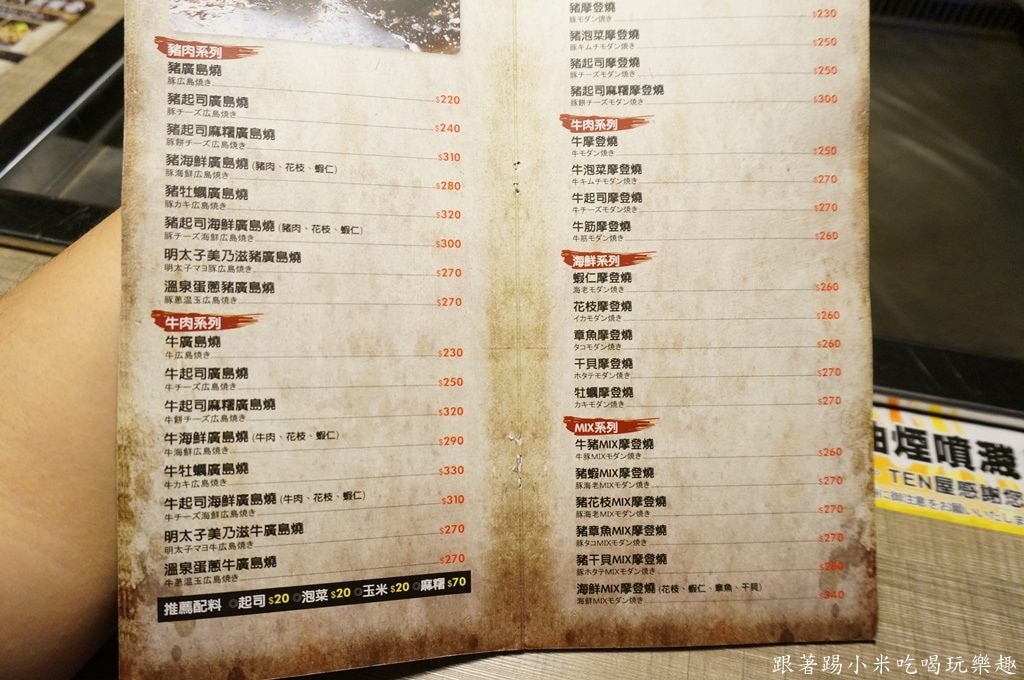 豬肉系列
豬廣島燒
豚広島焼き $220
豬起司廣島燒
豚チーズ広島焼き $240
豬起司麻糬廣島燒
豚餅チーズ広島焼き $310
豬海鮮廣島燒 (豬肉、花枝、蝦仁)
豚海鮮広島焼き $280
豬牡蠣廣島燒
豚カキ広島焼き $320
豬起司海鮮廣島燒 (豬肉、花枝、蝦仁)
豚チーズ海鮮広島焼き $300
明太子美乃滋豬廣島燒
明太子マヨ豚広島焼き $270
溫泉蛋蔥豬廣島燒
豚蔥温玉広島焼き $270
牛肉系列
牛廣島燒
牛広島焼き $230
牛起司廣島燒
牛チーズ広島焼き $250
牛起司麻糬廣島燒
牛餅チーズ広島焼き $320
牛海鮮廣島燒 (牛肉、花枝、蝦仁)
牛海鮮広島焼き $290
牛牡蠣廣島燒
牛カキ広島焼き $330
牛起司海鮮廣島燒 (牛肉、花枝、蝦仁)
牛チーズ海鮮広島焼き $310
明太子美乃滋牛廣島燒
明太子マヨ牛広島焼き $270
溫泉蛋蔥牛廣島燒
牛蔥温玉広島焼き $270
推薦配料 起司 $20 泡菜 $20 玉米 $20 麻糬 $70
豬摩登燒
豚モダン焼き $230
豬泡菜摩登燒
豚キムチモダン焼き $250
豬起司摩登燒
豚チーズモダン焼き $250
豬起司麻糬摩登燒
豚餅チーズモダン焼き $300
牛肉系列
牛摩登燒
牛モダン焼き $250
牛泡菜摩登燒
牛キムチモダン焼き $270
牛起司摩登燒
牛チーズモダン焼き $270
牛筋摩登燒
牛筋モダン焼き $260
海鮮系列
蝦仁摩登燒
海老モダン焼き $260
花枝摩登燒
イカモダン焼き $260
章魚摩登燒
タコモダン焼き $260
干貝摩登燒
ホタテモダン焼き $270
牡蠣摩登燒
カキモダン焼き $270
MIX系列
牛豬MIX摩登燒
牛豚MIXモダン焼き $260
豬蝦MIX摩登燒
豚海老MIXモダン焼き $270
豬花枝MIX摩登燒
豚海老MIXモダン焼き $270
豬章魚MIX摩登燒
豚タコMIXモダン焼き $270
豬干貝MIX摩登燒
豚ホタテMIXモダン焼き $280
海鮮MIX摩登燒 (花枝、蝦仁、章魚、干貝)
海鮮MIXモダン焼き $340
油煙噴濺
TEN屋感謝您
御注意をお願いいたしま
跟著踢小米吃喝玩樂趣